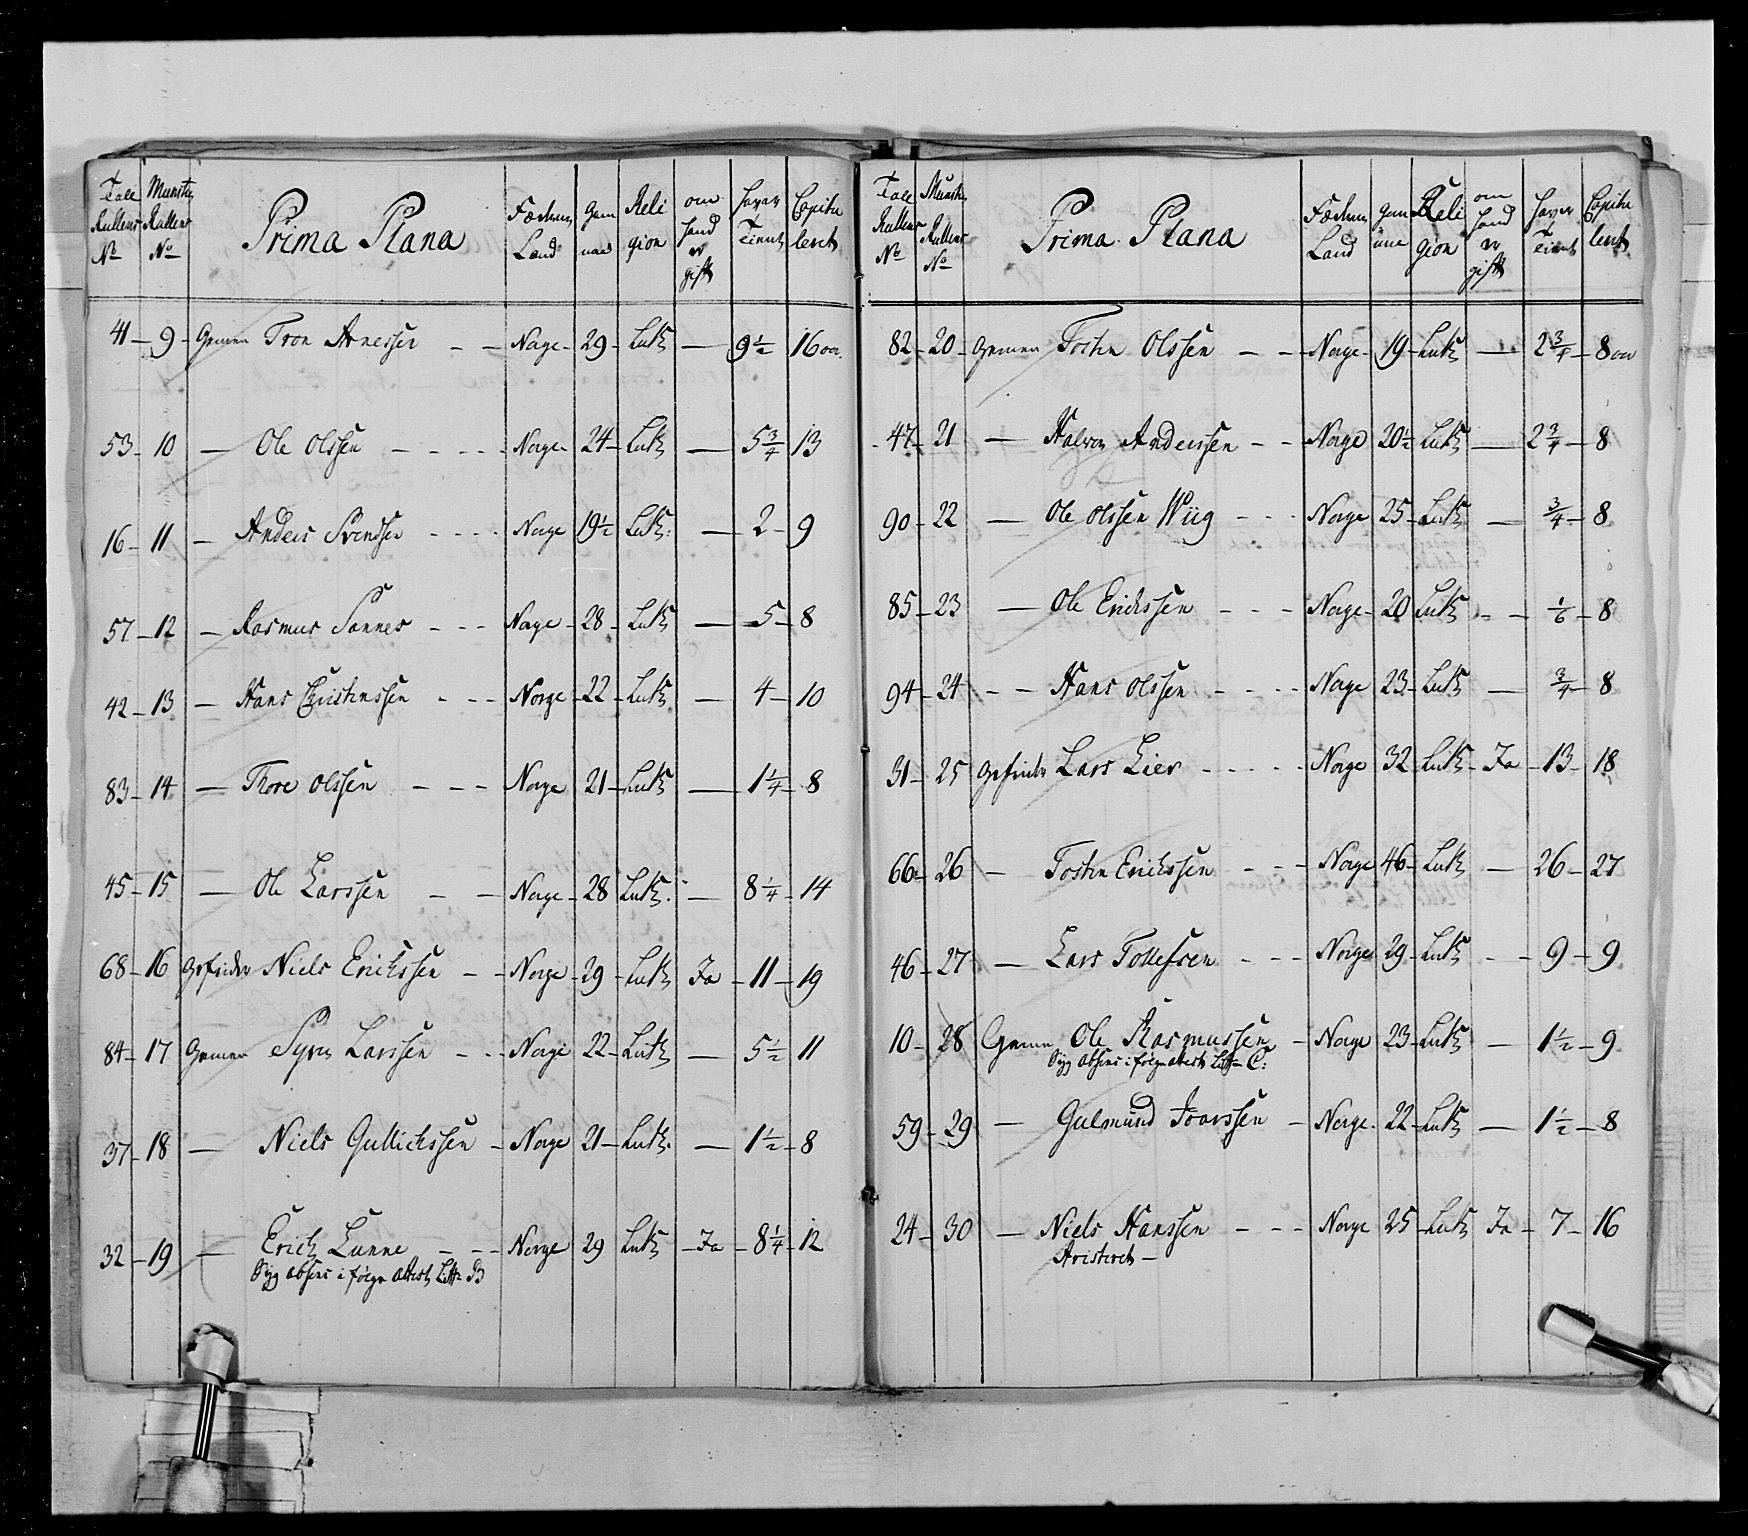 Tale Rullens No | Munster Rullens No | Prima Plana | Fædrene Land | Religion | om hand er gift | haver tient | Capitu leret
41 – 9 – Gemen Tron Arnessen – – Norge – 29 – Luth – 9 1/2 16 aar
53 – 10 – Ole Olssen – – – – Norge – 24 – Luth – 5 3/4 13
16 – 11 – Anders Svendsen – – – – Norge 19 1/2 Luth: – 2 – 9
57 – 12 – Rasmus Sonnes – – – Norge – 28 – Luth – 5 – 8
42 – 13 – Hans Christenssen – – – Norge – 22 – Luth – 4 – 10
83 – 14 – Thore Olssen – – – Norge 21 – Luth – 1 1/4 – 8
45 – 15 – Ole Larssen – – Norge – 28 Luth: – 8 1/4 – 14
68 – 16 Gefrider Niels Erichssen – – Norge – 29 – Luth Ja – 11 – 19
84 – 17 Gemen Syver Larssen – – – Norge 22 – Luth – 5 1/2 11
37 – 18 – Niels Gullichssen – Norge 21 – Luth. – 1 1/2 – 8
32 – 19 – Erich Lunne – – – Norge 29 Luth – Ja – 8 1/4 – 12
Syg absens i følge Attest Littr B
Tale Rullens No | Munster Rullens No | Prima Plana | Fædrene Land | Religion | om hand er gift | haver tient | Capitu leret
82 – 20 – Gemen Tosten Olssen – – – Norge – 19 – Luth – 2 3/4 – 8 aar
47 – 21 – Halvor Anderssen – – Norge 20 1/2 Luth – 2 3/4 – 8
90 – 22 – Ole Olssen Wiig – – – Norge 25 – Luth – 3/4 – 8
85 – 23 – Ole Erichssen – – – Norge – 20 Luth – – 1/6 – 8
94 – 24 – – Hans Olssen – – – – Norge 23 – Luth – 3/4 – 8
31 – 25 Gefrider Lars Lier – – – – – Norge 32 – Luth – Ja – 13 – 18
66 – 26 – Tosten Erichssen – – – Norge 46 – Luth – 26 – 27
46 – 27 – Lars Tollefsen – – – Norge 29 – Luth – – 9 – 9
10 – 28 Gemen Ole Rasmussen – Norge 23 – Luth – 1 1/2 – 9
Syg absens i følge attest Littr C:
59 – 29 – Gulmund Ivarssen – Norge – 22 – Luth – 1 1/2 – 8
24 – 30 – Niels Hanssen – – – Norge 25 – Luth Ja – 7 – 16
Aristeret –